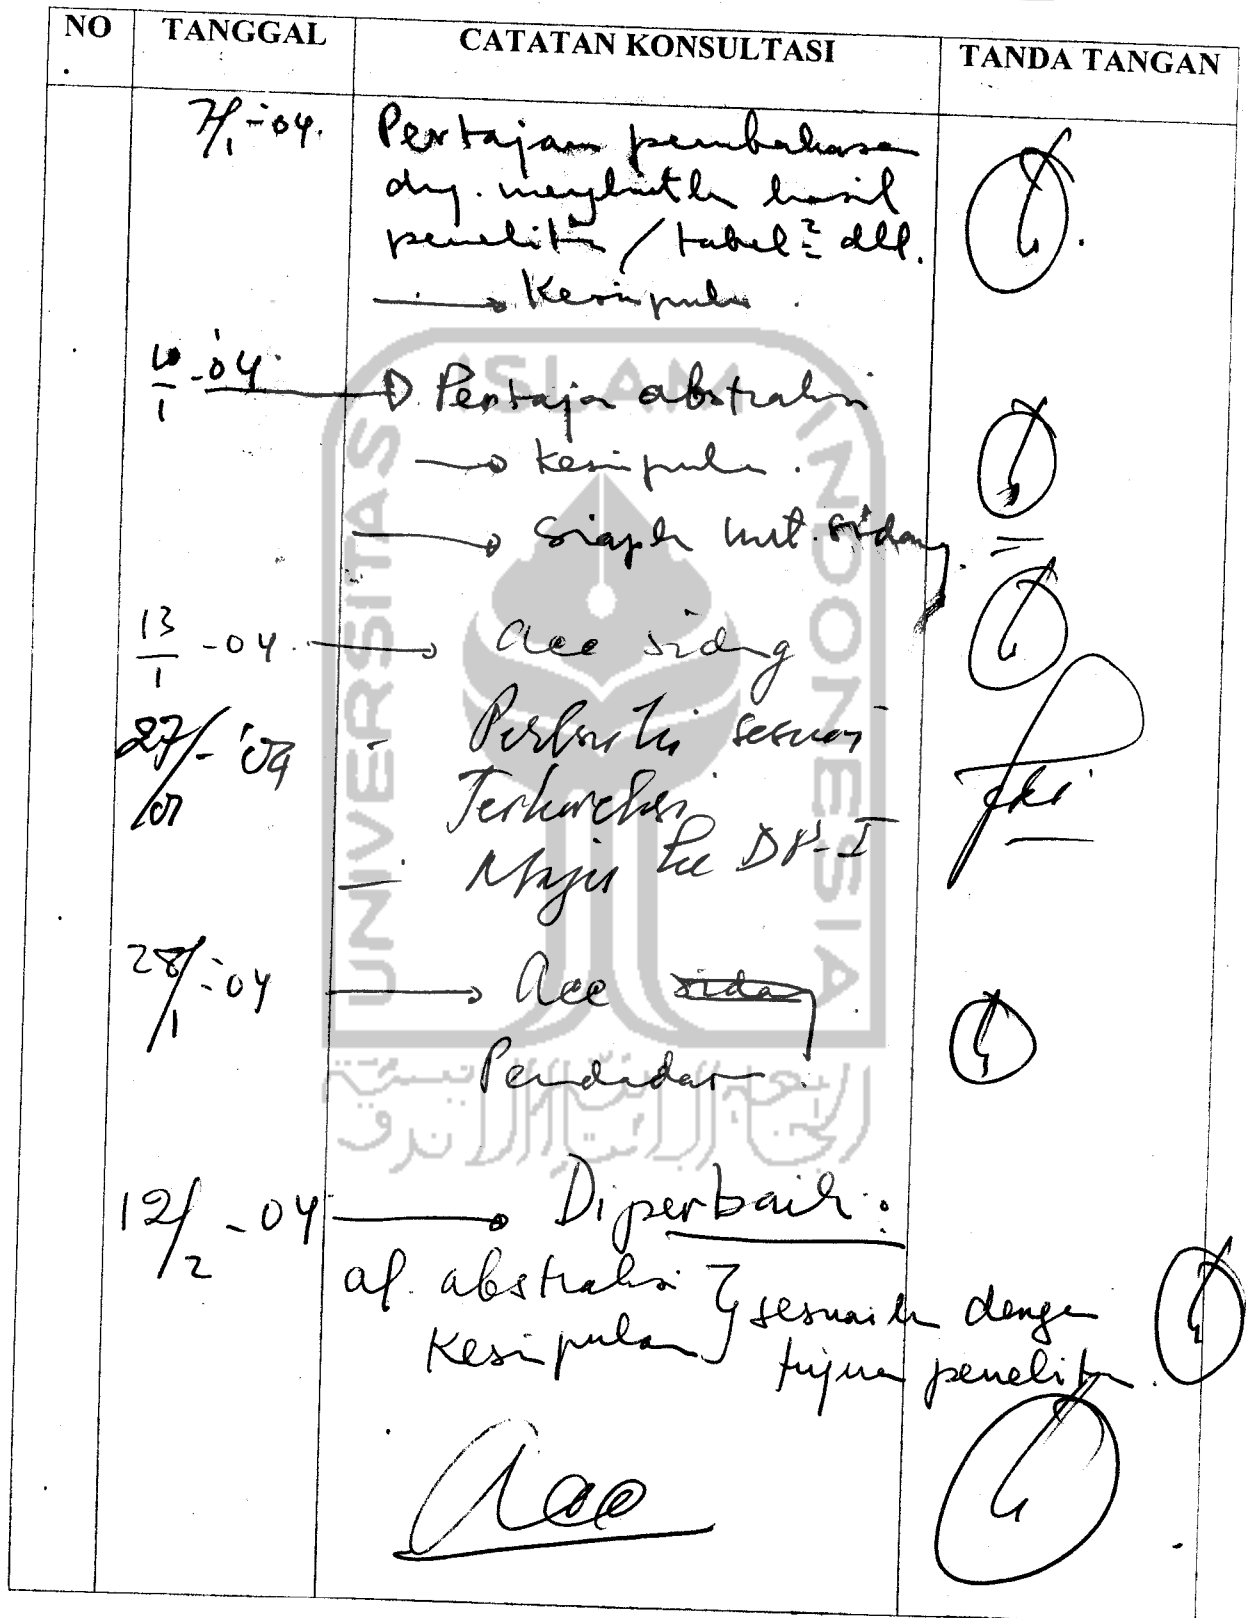 NO TANGGAL CATATAN KONSULTASI TANDA TANGAN
7/1-04. Pertajam pembahasan
dng. hasil
penelitian / tabel² dll.
→ Kesimpulan.
10/1-04. → Pertajam abstraksi
→ Kesimpulan.
→ Siapkan unt. sidang.
13/1 -04. → acc sidang
27/01-'04 - Perbaiki sesuai
Terkoreksi
- Maju ke DP-I
28/1-04 → acc sidang
Pendadaran.
12/2 -04 → Diperbaiki:
abstraksi } sesuaikan dengan
Kesimpulan } tujuan penelitian.
acc
UNIVERSITAS ISLAM INDONESIA